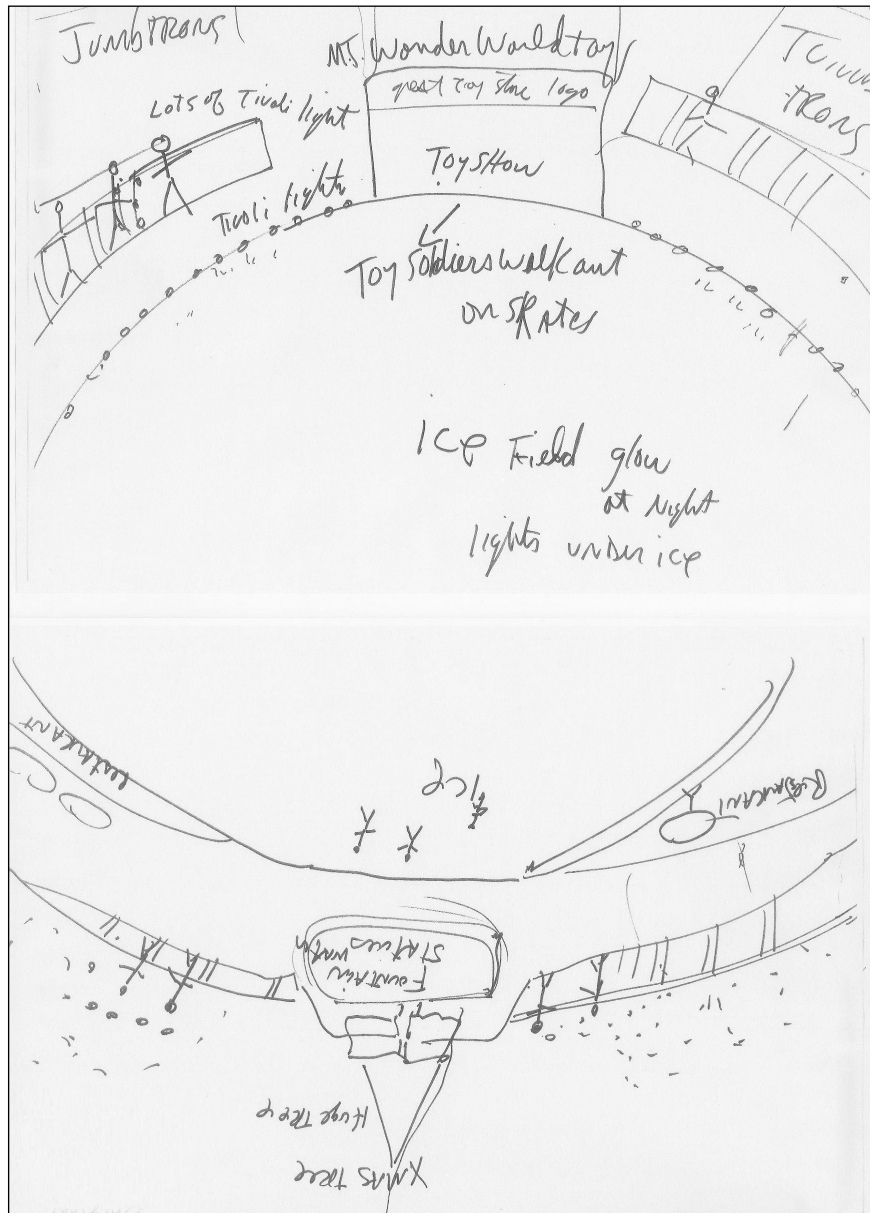 JUMBTRONS
MJ. WonderWorld toy
great toy store logo
JUMB
-TRONS
Lots of Tivoli light
Toy SHOW
Tivoli lights
Toy Soldiers walk out
on skates
ICE Field glow
at Night
lights under ice
RestauRANT
ICE
RestauRANT
Fountain
Statues water
Huge Tree
XMAS tree